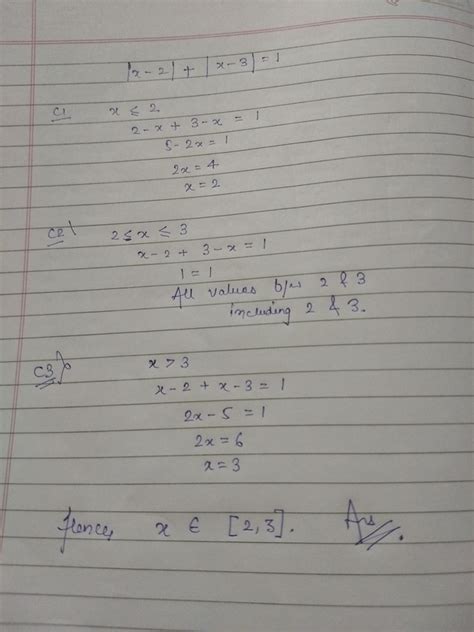 |x-2| + |x-3| = 1
C1 x ≤ 2
2-x + 3-x = 1
5-2x = 1
2x = 4
x = 2
C2 2 ≤ x ≤ 3
x-2 + 3-x = 1
1 = 1
All values b/w 2 & 3
including 2 & 3.
C3 x > 3
x-2 + x-3 = 1
2x-5 = 1
2x = 6
x = 3
Hence, x ∈ [2,3]. Ans